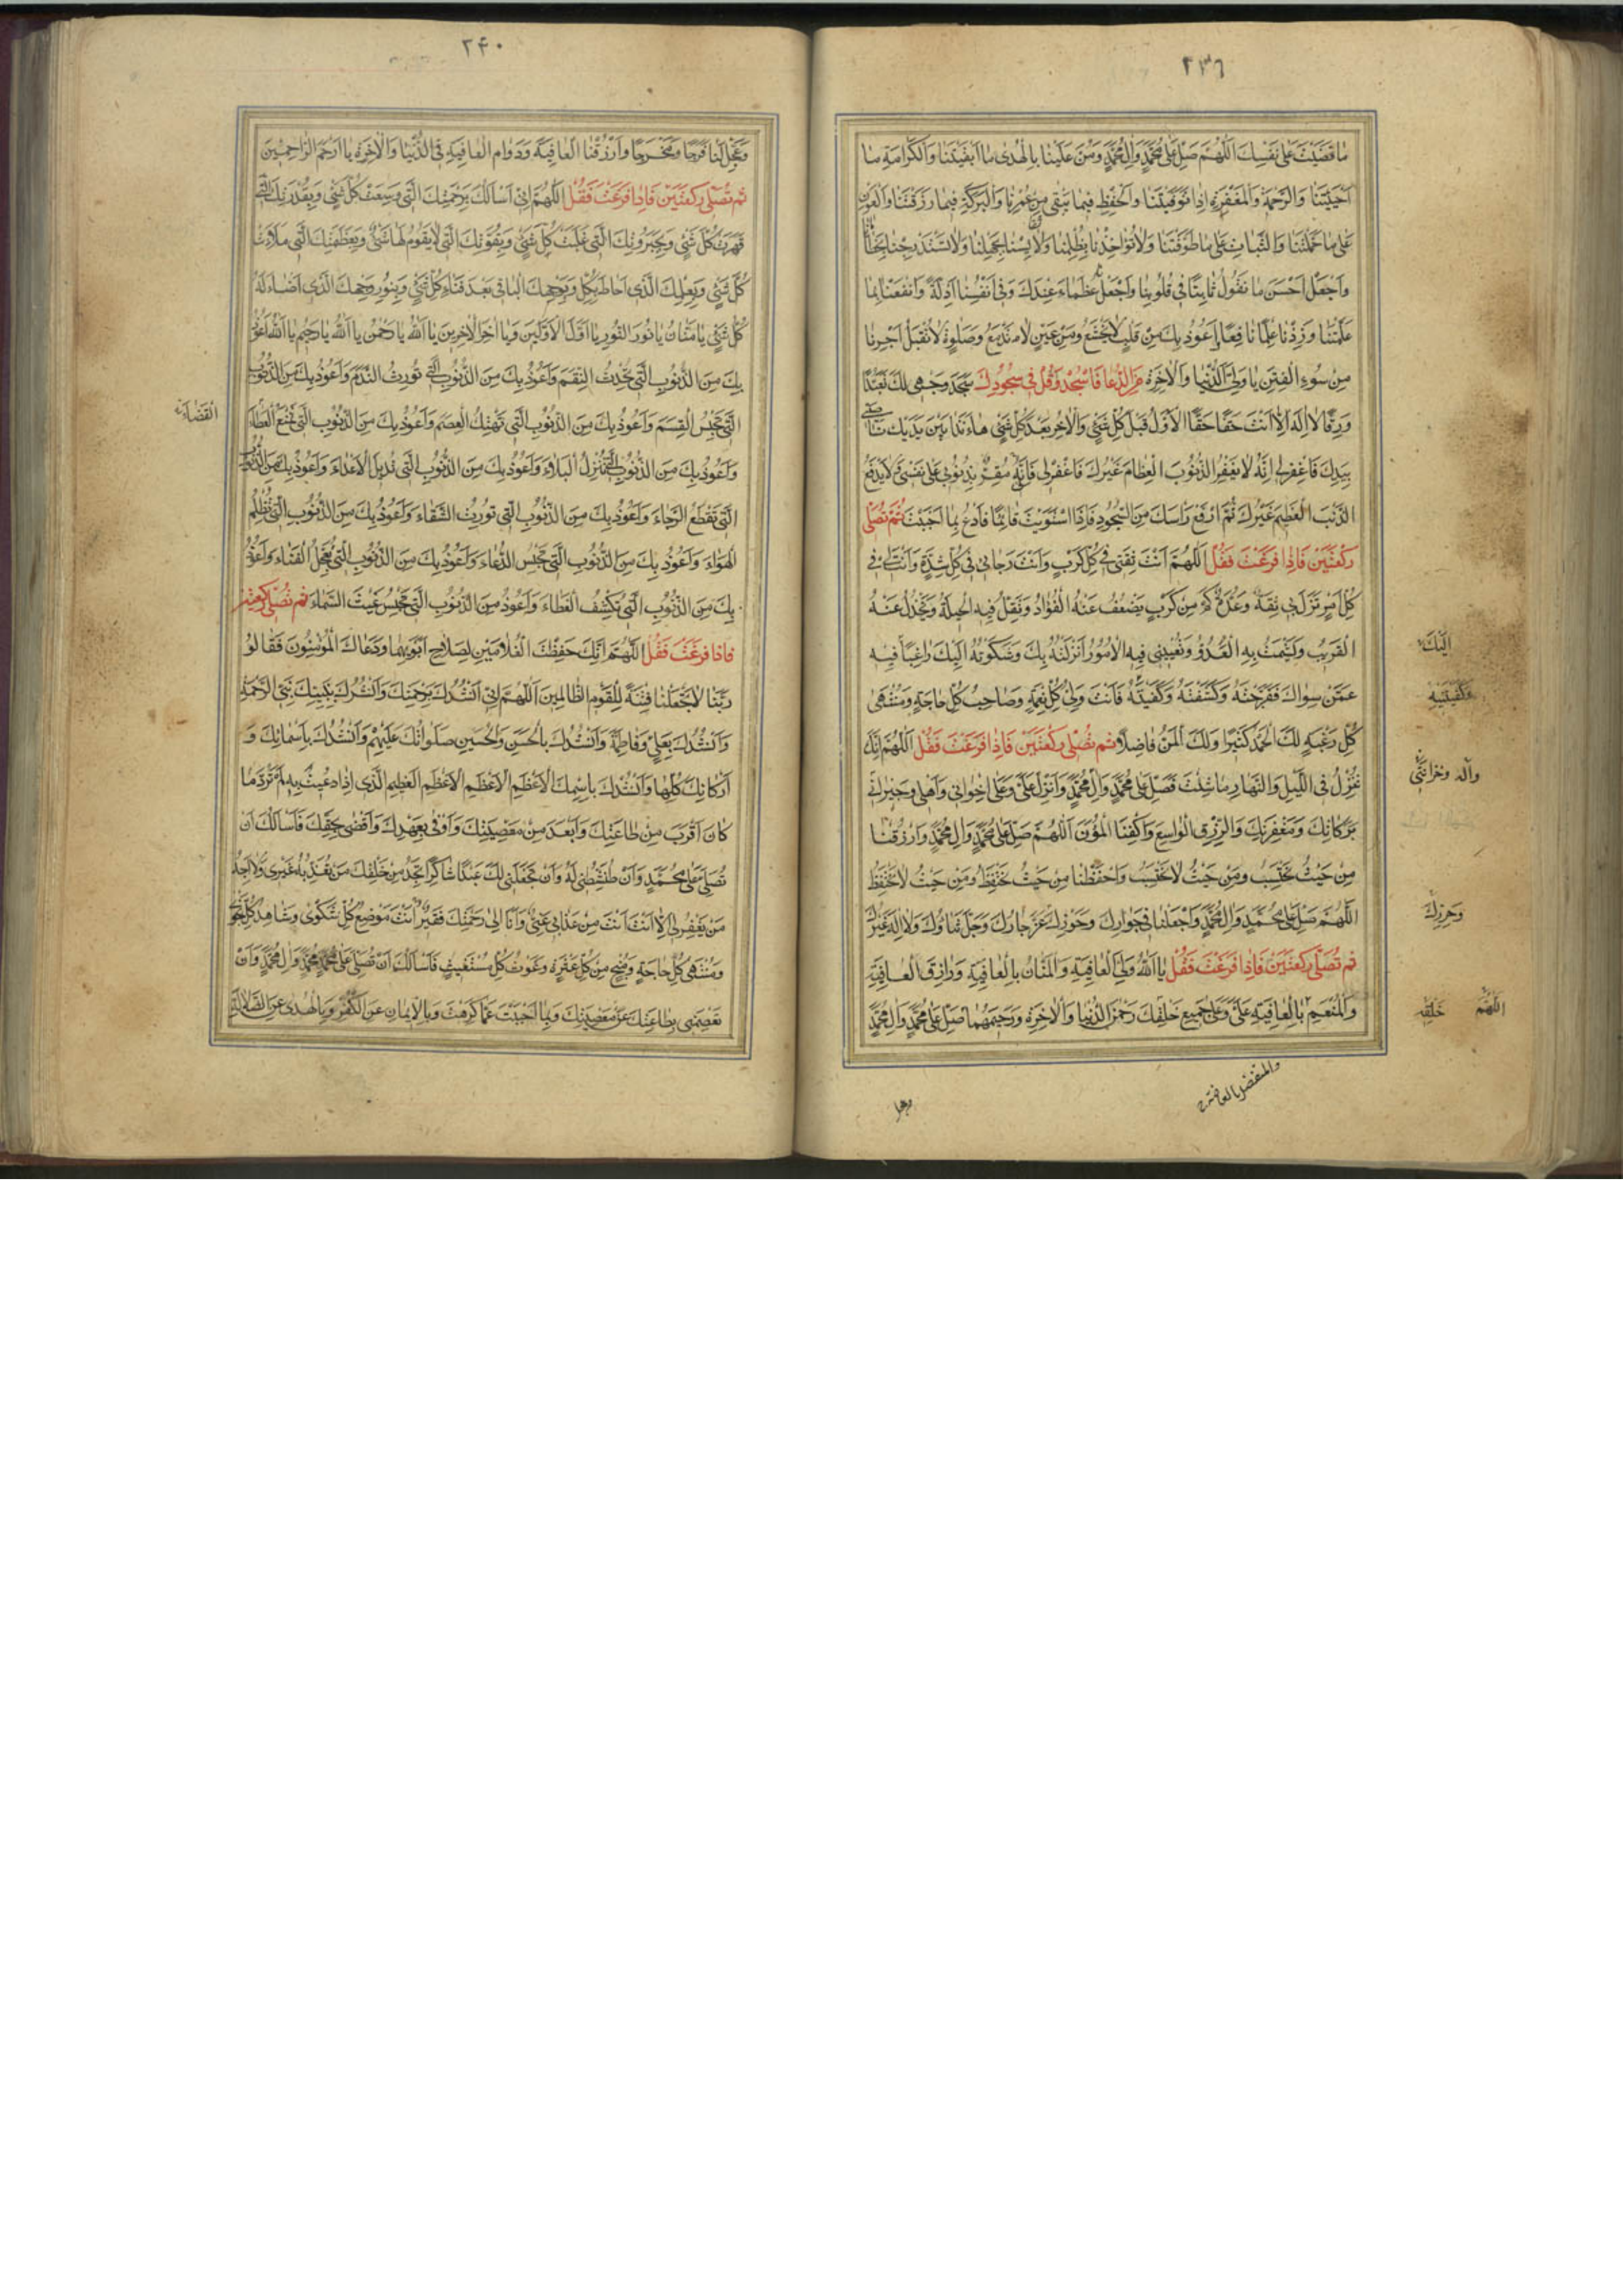 ٢٣٩
ما قضيت على نفسك اَللّٰهُمَّ صَلِّ عَلىٰ مُحَمَّدٍ وَالِ مُحَمَّدٍ وَمُنَّ عَلَيْنا بِالْهُدىٰ ما اَبْقَيْتَنا وَالْكَرامَةِ ما
اَحْيَيْتَنا وَالرَّحْمَةِ وَالْمَغْفِرَةِ اِذا تَوَفَّيْتَنا وَالْحِفْظِ فيما يَبْقى مِنْ عُمْرِنا وَالْبَرَكَةِ فيما رَزَقْتَنا وَالْعَوْنِ
عَلىٰ ما حَمَّلْتَنا وَالثَّباتِ عَلىٰ ما طَوَّقْتَنا وَلا تُؤاخِذْنا بِظُلْمِنا وَلا تُقايِسْنا بِجَهْلِنا وَلا تَسْتَدْرِجْنا بِخَطايانا
وَاجْعَلْ اَحْسَنَ ما نَقُولُ ثابِتًا في قُلُوبِنا وَاجْعَلْنا عُظَماءَ عِنْدَكَ وَفي اَنْفُسِنا اَذِلَّةً وَانْفَعْنا بِما
عَلَّمْتَنا وَزِدْنا عِلْمًا نافِعًا اَعُوذُ بِكَ مِنْ قَلْبٍ لا يَخْشَعُ وَمِنْ عَيْنٍ لا تَدْمَعُ وَصَلوةٍ لا تُقْبَلُ اَجِرْنا
مِنْ سُوءِ الْفِتَنِ يا وَلِيَّ الدُّنْيا وَالْاٰخِرَةِ مِنَ الدُّعا فَاسْجُدْ وَقُلْ في سُجُودِكَ سَجَدَ وَجْهي لَكَ تَعَبُّدًا
وَرِقًّا لا اِلٰهَ اِلّا اَنْتَ حَقًّا حَقًّا الْاَوَّلُ قَبْلَ كُلِّ شَيْءٍ وَالْاٰخِرُ بَعْدَ كُلِّ شَيْءٍ ها اَنَا ذا بَيْنَ يَدَيْكَ ناصِيَتي
بِيَدِكَ فَاغْفِرْ لي اِنَّهُ لا يَغْفِرُ الذُّنُوبَ الْعِظامَ غَيْرُكَ فَاغْفِرْ لي فَاِنّي مُقِرٌّ بِذُنُوبي عَلىٰ نَفْسي وَلا يَدْفَعُ
الذَّنْبَ الْعَظيمَ غَيْرُكَ ثُمَّ ارْفَعْ رَاْسَكَ مِنَ السُّجُودِ فَاِذَا اسْتَوَيْتَ قائِمًا فَادْعُ بِما اَحْبَبْتَ ثُمَّ تُصَلّي
رَكْعَتَيْنِ فَاِذا فَرَغْتَ فَقُلْ اَللّٰهُمَّ اَنْتَ ثِقَتي في كُلِّ كَرْبٍ وَاَنْتَ رَجائي في كُلِّ شِدَّةٍ وَاَنْتَ لي في
كُلِّ اَمْرٍ نَزَلَ بي ثِقَةٌ وَعُدَّةٌ كَمْ مِنْ كَرْبٍ يَضْعُفُ عَنْهُ الْفُؤادُ وَتَقِلُّ فيهِ الْحيلَةُ وَيَخْذُلُ عَنْهُ
الْقَريبُ وَيَشْمَتُ بِهِ الْعَدُوُّ وَتُعْييني فيهِ الْاُمُورُ اَنْزَلْتُهُ بِكَ وَشَكَوْتُهُ اِلَيْكَ راغِبًا فيهِ
اِلَيْكَ
عَمَّنْ سِواكَ فَفَرَّجْتَهُ وَكَشَفْتَهُ وَكَفَيْتَهُ فَاَنْتَ وَلِيُّ كُلِّ نِعْمَةٍ وَصاحِبُ كُلِّ حاجَةٍ وَمُنْتَهىٰ
وَكَفَيْتَنيهِ
كُلِّ رَغْبَةٍ لَكَ الْحَمْدُ كَثيرًا وَلَكَ الْمَنُّ فاضِلًا ثم تُصَلّي رَكْعَتَيْنِ فَاِذا فَرَغْتَ فَقُلْ اَللّٰهُمَّ اِنَّكَ
تُنْزِلُ فِي اللَّيْلِ وَالنَّهارِ ما شِئْتَ فَصَلِّ عَلىٰ مُحَمَّدٍ وَالِ مُحَمَّدٍ وَاَنْزِلْ عَلَيَّ وَعَلىٰ اِخْواني وَاَهْلي وَجيراني
بَرَكاتِكَ وَمَغْفِرَتَكَ وَالرِّزْقَ الْواسِعَ وَاكْفِنَا الْمُؤَنَ اَللّٰهُمَّ صَلِّ عَلىٰ مُحَمَّدٍ وَالِ مُحَمَّدٍ وَارْزُقْنا
مِنْ حَيْثُ نَحْتَسِبُ وَمِنْ حَيْثُ لا نَحْتَسِبُ وَاحْفَظْنا مِنْ حَيْثُ نَحْتَفِظُ وَمِنْ حَيْثُ لا نَحْتَفِظُ
اَللّٰهُمَّ صَلِّ عَلىٰ مُحَمَّدٍ وَالِ مُحَمَّدٍ وَاجْعَلْنا في جِوارِكَ وَحَوْزِكَ عَزَّ جارُكَ وَجَلَّ ثَناؤُكَ وَلا اِلٰهَ غَيْرُكَ
وَحِرْزِكَ
ثم تُصَلّي رَكْعَتَيْنِ فَاِذا فَرَغْتَ فَقُلْ يا اَللّٰهُ وَلِيَّ الْعافِيَةِ وَالْمَنّانُ بِالْعافِيَةِ وَرازِقَ الْعافِيَةِ
وَالْمُنْعِمَ بِالْعافِيَةِ عَلَيَّ وَعَلىٰ جَميعِ خَلْقِكَ رَحْمٰنَ الدُّنْيا وَالْاٰخِرَةِ وَرَحيمَهُما صَلِّ عَلىٰ مُحَمَّدٍ وَالِ مُحَمَّدٍ
اَللّٰهُمَّ خَلْقِهِ
والمتفضل بالعافية
وعجل
٢۴٠
وَعَجِّلْ لَنا فَرَجًا وَمَخْرَجًا وَارْزُقْنا الْعافِيَةَ وَدَوامَ الْعافِيَةِ فِي الدُّنْيا وَالْاٰخِرَةِ يا اَرْحَمَ الرّاحِمينَ
ثم تُصَلّي رَكْعَتَيْنِ فَاِذا فَرَغْتَ فَقُلْ اَللّٰهُمَّ اِنّي اَسْاَلُكَ بِرَحْمَتِكَ الَّتي وَسِعَتْ كُلَّ شَيْءٍ وَبِقُدْرَتِكَ الَّتي
قَهَرَتْ كُلَّ شَيْءٍ وَبِجَبَرُوتِكَ الَّتي غَلَبَتْ كُلَّ شَيْءٍ وَبِقُوَّتِكَ الَّتي لا يَقُومُ لَها شَيْءٌ وَبِعَظَمَتِكَ الَّتي مَلَاَتْ
كُلَّ شَيْءٍ وَبِعِلْمِكَ الَّذي اَحاطَ بِكُلِّ وَبِوَجْهِكَ الْباقي بَعْدَ فَناءِ كُلِّ شَيْءٍ وَبِنُورِ وَجْهِكَ الَّذي اَضاءَ لَهُ
كُلُّ شَيْءٍ يا مَنّانُ يا نُورَ النُّورِ يا اَوَّلَ الْاَوَّلينَ وَيا اٰخِرَ الْاٰخِرينَ يا اَللّٰهُ يا رَحْمٰنُ يا اَللّٰهُ يا رَحيمُ يا اَللّٰهُ اَعُوذُ
بِكَ مِنَ الذُّنُوبِ الَّتي تُحْدِثُ النِّقَمَ وَاَعُوذُ بِكَ مِنَ الذُّنُوبِ الَّتي تُورِثُ النَّدَمَ وَاَعُوذُ بِكَ مِنَ الذُّنُوبِ
الَّتي تَحْبِسُ الْقِسَمَ وَاَعُوذُ بِكَ مِنَ الذُّنُوبِ الَّتي تَهْتِكُ الْعِصَمَ وَاَعُوذُ بِكَ مِنَ الذُّنُوبِ الَّتي تَمْنَعُ الْعَطاءَ
الْقَضاءَ
وَاَعُوذُ بِكَ مِنَ الذُّنُوبِ الَّتي تُنْزِلُ الْبَلاءَ وَاَعُوذُ بِكَ مِنَ الذُّنُوبِ الَّتي تُديلُ الْاَعْداءَ وَاَعُوذُ بِكَ مِنَ الذُّنُوبِ
الَّتي تَقْطَعُ الرَّجاءَ وَاَعُوذُ بِكَ مِنَ الذُّنُوبِ الَّتي تُورِثُ الشَّقاءَ وَاَعُوذُ بِكَ مِنَ الذُّنُوبِ الَّتي تُظْلِمُ
الْهَواءَ وَاَعُوذُ بِكَ مِنَ الذُّنُوبِ الَّتي تَحْبِسُ الدُّعاءَ وَاَعُوذُ بِكَ مِنَ الذُّنُوبِ الَّتي تُعَجِّلُ الْفَناءَ وَاَعُوذُ
بِكَ مِنَ الذُّنُوبِ الَّتي تَكْشِفُ الْغِطاءَ وَاَعُوذُ مِنَ الذُّنُوبِ الَّتي تَحْبِسُ غَيْثَ السَّماءِ ثم تُصَلّي رَكْعَتَيْنِ
فَاِذا فَرَغْتَ فَقُلْ اَللّٰهُمَّ اِنَّكَ حَفِظْتَ الْغُلامَيْنِ لِصَلاحِ اَبَوَيْهِما وَدَعاكَ الْمُؤْمِنُونَ فَقالُوا
رَبَّنا لا تَجْعَلْنا فِتْنَةً لِلْقَوْمِ الظّالِمينَ اَللّٰهُمَّ اِنّي اَنْشُدُكَ بِرَحْمَتِكَ وَاَنْشُدُكَ بِنَبِيِّكَ نَبِيِّ الرَّحْمَةِ
وَاَنْشُدُكَ بِعَلِيٍّ وَفاطِمَةَ وَاَنْشُدُكَ بِالْحَسَنِ وَالْحُسَيْنِ صَلَواتُكَ عَلَيْهِمْ وَاَنْشُدُكَ بِاَسْمائِكَ وَ
اَرْكانِكَ كُلِّها وَاَنْشُدُكَ بِاسْمِكَ الْاَعْظَمِ الْاَعْظَمِ الْاَعْظَمِ الْعَظيمِ الَّذي اِذا دُعيتَ بِهِ لَمْ تَرُدَّ ما
كانَ اَقْرَبَ مِنْ طاعَتِكَ وَاَبْعَدَ مِنْ مَعْصِيَتِكَ وَاَوْفىٰ بِعَهْدِكَ وَاَقْضىٰ بِحَقِّكَ فَاَسْاَلُكَ اَنْ
تُصَلِّيَ عَلىٰ مُحَمَّدٍ وَاَنْ تُنَشِّطَني لَهُ وَاَنْ تَجْعَلَني لَكَ عَبْدًا شاكِرًا تَجِدُ مِنْ خَلْقِكَ مَنْ تُعَذِّبُهُ غَيْري وَلا اَجِدُ
مَنْ يَغْفِرُ لي اِلّا اَنْتَ اَنْتَ مِنْ عَذابي غَنِيٌّ وَاَنا اِلىٰ رَحْمَتِكَ فَقيرٌ اَنْتَ مَوْضِعُ كُلِّ شَكْوىٰ وَشاهِدُ كُلِّ نَجْوىٰ
وَمُنْتَهىٰ كُلِّ حاجَةٍ وَمُنْجٍ مِنْ كُلِّ عَثْرَةٍ وَغَوْثُ كُلِّ مُسْتَغيثٍ فَاَسْاَلُكَ اَنْ تُصَلِّيَ عَلىٰ مُحَمَّدٍ وَالِ مُحَمَّدٍ وَاَنْ
تَعْصِمَني بِطاعَتِكَ عَنْ مَعْصِيَتِكَ وَبِما اَحْبَبْتَ عَمّا كَرِهْتَ وَبِالْايمانِ عَنِ الْكُفْرِ وَبِالْهُدىٰ عَنِ الضَّلالَةِ